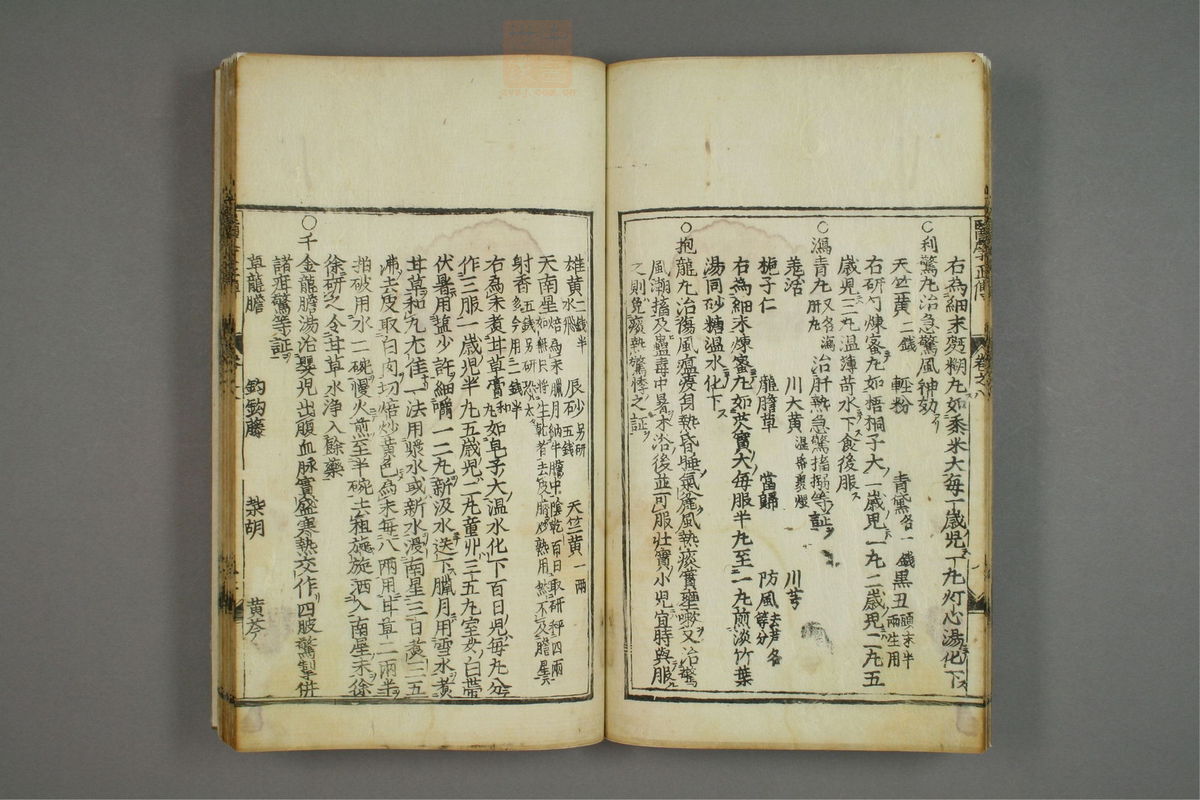 右為細末麪糊丸如黍米大每一歲児一丸灯心湯化下
○利驚丸治急驚風神効
天竺黃二錢 輕粉 青黛各一錢 黒丑頭末半兩生用
右研勻煉蜜丸如梧桐子大一歲児一丸二歲児二丸五
歲児三丸温薄苛水下食後服
○瀉青丸又名瀉肝丸治肝熱急驚搐搦等証
羌活 川大黄湿帋裹煨 川芎
梔子仁 龍膽草 當歸 防風去芦各等分
右為細末煉蜜丸如芡實大每服半丸至一丸煎淡竹葉
湯同砂糖温水化下
○抱龍丸治傷風瘟疫身熱昏睡氣麁風熱痰實壅嗽又治驚
風潮搐及蠱毒中暑沐浴後並可服壯實小児宜時與服
之則免痰熱驚悸之証
雄黄水飛二錢半 辰砂另研五錢 天竺黄一兩
天南星焙為末臘月納牛膽中陰乾百日取研秤四兩如無只將生乾者去皮臍炒熟用然不及膽星
射香五錢另研恐太多今用一錢半
右為末煮甘草膏和丸如皂子大温水化下百日児每丸分
作三服一歲児半丸五歲児二丸童丱三五丸室女白帯
伏暑用塩少許細嚼一二丸新汲水送下臘月用雪水煮
甘草和丸尤佳一法用漿水或新水浸南星三日煮三五
沸去皮取白肉切焙炒黄色為末每八兩用甘草二兩半
拍破用水二碗慢火煎至半碗去粗旋旋洒入南星末徐
徐研之令甘草水浄入餘藥
○千金龍膽湯治嬰児出腹血脉實盛寒熱交作四肢驚掣併
諸疳驚等証
草龍膽 釣鈎藤 柴胡 黄芩